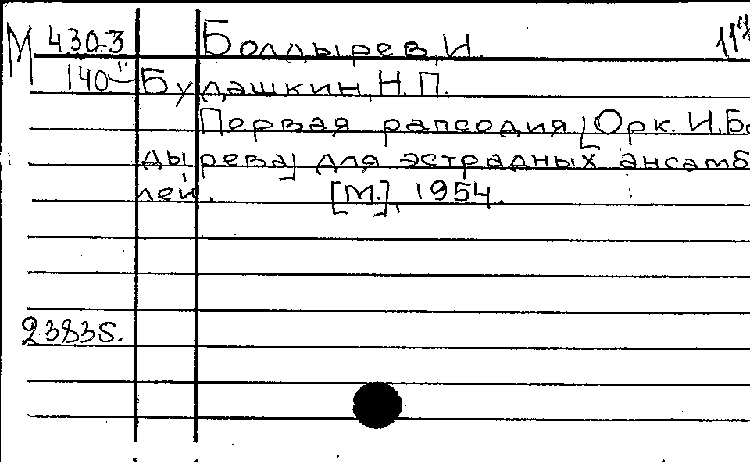 М 430-3 Болдырев, И.
140 Будашкин, Н. П.
Первая рапсодия [Орк. И. Бо
дырева] для эстрадных ансамб
лей. [М.], 1954.
23835.